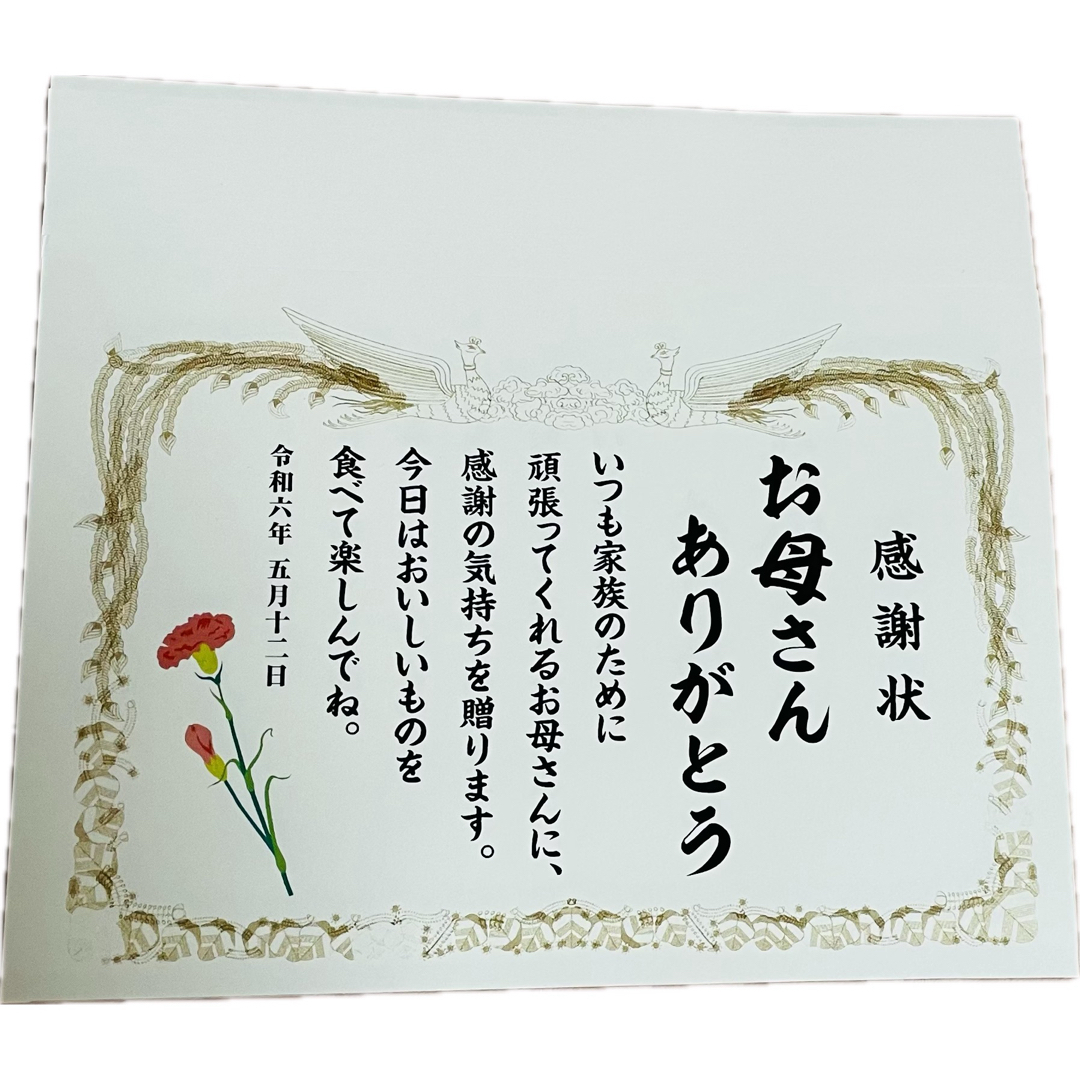 感謝状
お母さん
ありがとう
いつも家族のために
頑張ってくれるお母さんに、
感謝の気持ちを贈ります。
今日はおいしいものを
食べて楽しんでね。
令和六年 五月十二日